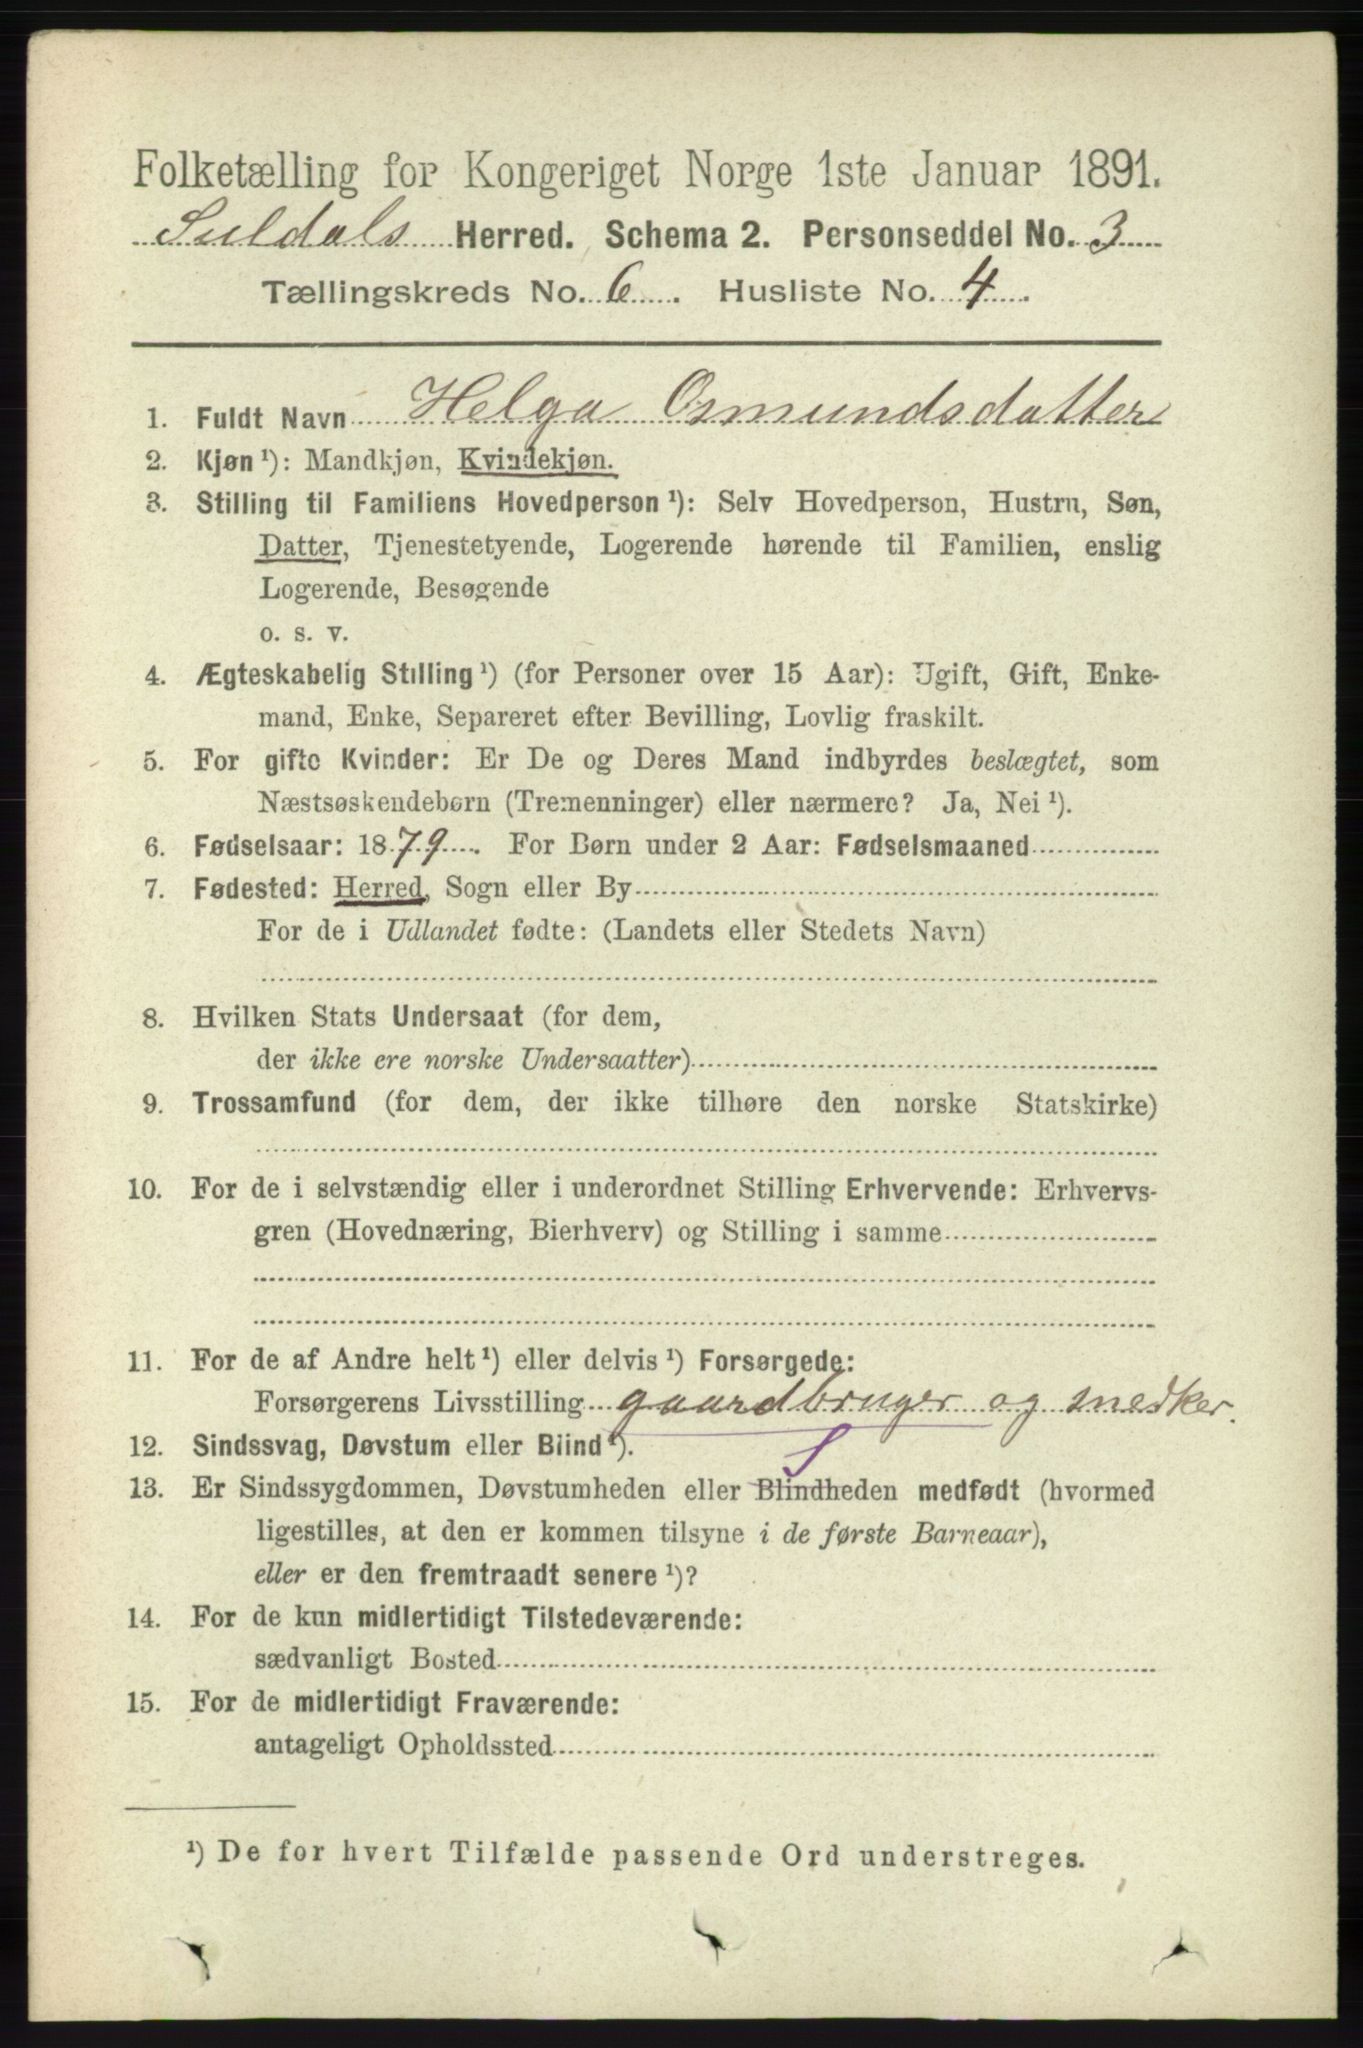 Folketælling for Kongeriget Norge 1ste Januar 1891.
Suldals Herred. Schema 2. Personseddel No. 3
Tællingskreds No. 6. Husliste No. 4.
1. Fuldt Navn Helga Osmundsdatter
2. Kjøn ¹): Mandkjøn, Kvindekjøn.
3. Stilling til Familiens Hovedperson ¹): Selv Hovedperson, Hustru, Søn,
Datter, Tjenestetyende, Logerende hørende til Familien, enslig
Logerende, Besøgende
o. s. v.
4. Ægteskabelig Stilling ¹) (for Personer over 15 Aar): Ugift, Gift, Enke-
mand, Enke, Separeret efter Bevilling, Lovlig fraskilt.
5. For gifte Kvinder: Er De og Deres Mand indbyrdes beslægtet, som
Næstsøskendebørn (Tremenninger) eller nærmere? Ja, Nei ¹).
6. Fødselsaar: 1879. For Børn under 2 Aar: Fødselsmaaned
7. Fødested: Herred, Sogn eller By
For de i Udlandet fødte: (Landets eller Stedets Navn)
8. Hvilken Stats Undersaat (for dem,
der ikke ere norske Undersaatter)
9. Trossamfund (for dem, der ikke tilhøre den norske Statskirke)
10. For de i selvstændig eller i underordnet Stilling Erhvervende: Erhvervs-
gren (Hovednæring, Bierhverv) og Stilling i samme
11. For de af Andre helt ¹) eller delvis ¹) Forsørgede:
Forsørgerens Livsstilling gaardbruger og snedker.
12. Sindssvag, Døvstum eller Blind ¹). S
13. Er Sindssygdommen, Døvstumheden eller Blindheden medfødt (hvormed
ligestilles, at den er kommen tilsyne i de første Barneaar),
eller er den fremtraadt senere ¹)?
14. For de kun midlertidigt Tilstedeværende:
sædvanligt Bosted
15. For de midlertidigt Fraværende:
antageligt Opholdssted
¹) De for hvert Tilfælde passende Ord understreges.